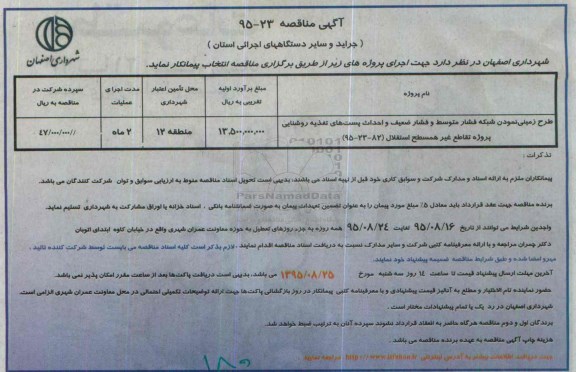 آگهی مناقصه ۲۳-۹۵
( جراید و سایر دستگاههای اجرائی استان )
شهرداری اصفهان
شهرداری اصفهان در نظر دارد جهت اجرای پروژه های زیر از طریق برگزاری مناقصه انتخاب پیمانکار نماید.
نام پروژه
مبلغ برآورد اولیه تقریبی به ریال
محل تأمین اعتبار شهرداری
مدت اجرای عملیات
سپرده شرکت در مناقصه به ریال
طرح زمینی‌نمودن شبکه فشار متوسط و فشار ضعیف و احداث پست‌های تغذیه روشنایی
پروژه تقاطع غیر همسطح استقلال (۸۲-۲۳-۹۵)
۱۳,۵۰۰,۰۰۰,۰۰۰
منطقه ۱۲
۲ ماه
۴۷/۰۰۰/۰۰۰//
تذکرات :
پیمانکاران ملزم به ارائه اسناد و مدارک شرکت و سوابق کاری خود قبل از تهیه اسناد می باشند، بدیهی است تحویل اسناد مناقصه منوط به ارزیابی سوابق و توان شرکت کنندگان می باشد.
برنده مناقصه جهت عقد قرارداد باید معادل ۵٪ مبلغ مورد پیمان را به عنوان تضمین تعهدات پیمان به صورت ضمانتنامه بانکی ، اسناد خزانه یا اوراق مشارکت به شهرداری تسلیم نماید.
واجدین شرایط می توانند از تاریخ ۹۵/۰۸/۱۶ لغایت ۹۵/۰۸/۲۴ همه روزه به جزء روزهای تعطیل به حوزه معاونت عمران شهری واقع در خیابان کاوه ابتدای اتوبان
دکتر چمران مراجعه و با ارائه معرفینامه کتبی شرکت و سایر مدارک نسبت به دریافت اسناد مناقصه اقدام نمایند . لازم بذکر است کلیه اسناد مناقصه می بایست توسط شرکت کننده تائید ،
مهرو امضا شده و طبق شرایط مناقصه ضمیمه پیشنهاد خود نمایند.
آخرین مهلت ارسال پیشنهاد قیمت تا ساعت ۱۴ روز سه شنبه مورخ ۱۳۹۵/۰۸/۲۵ می باشد، بدیهی است دریافت پاکت‌ها بعد از ساعت مقرر امکان پذیر نمی باشد.
حضور نماینده تام الاختیار و مطلع به آنالیز قیمت پیشنهادی و با معرفینامه کتبی پیمانکار در روز بازگشائی پاکت‌ها جهت ارائه توضیحات تکمیلی احتمالی در محل معاونت عمران شهری الزامی است.
شهرداری اصفهان در رد یک یا تمام پیشنهادات مختار است .
برندگان اول و دوم مناقصه هرگاه حاضر به انعقاد قرارداد نشوند سپرده آنان به ترتیب ضبط خواهد شد.
هزینه چاپ آگهی مناقصه به عهده برنده مناقصه می باشد.
ParsNamadData